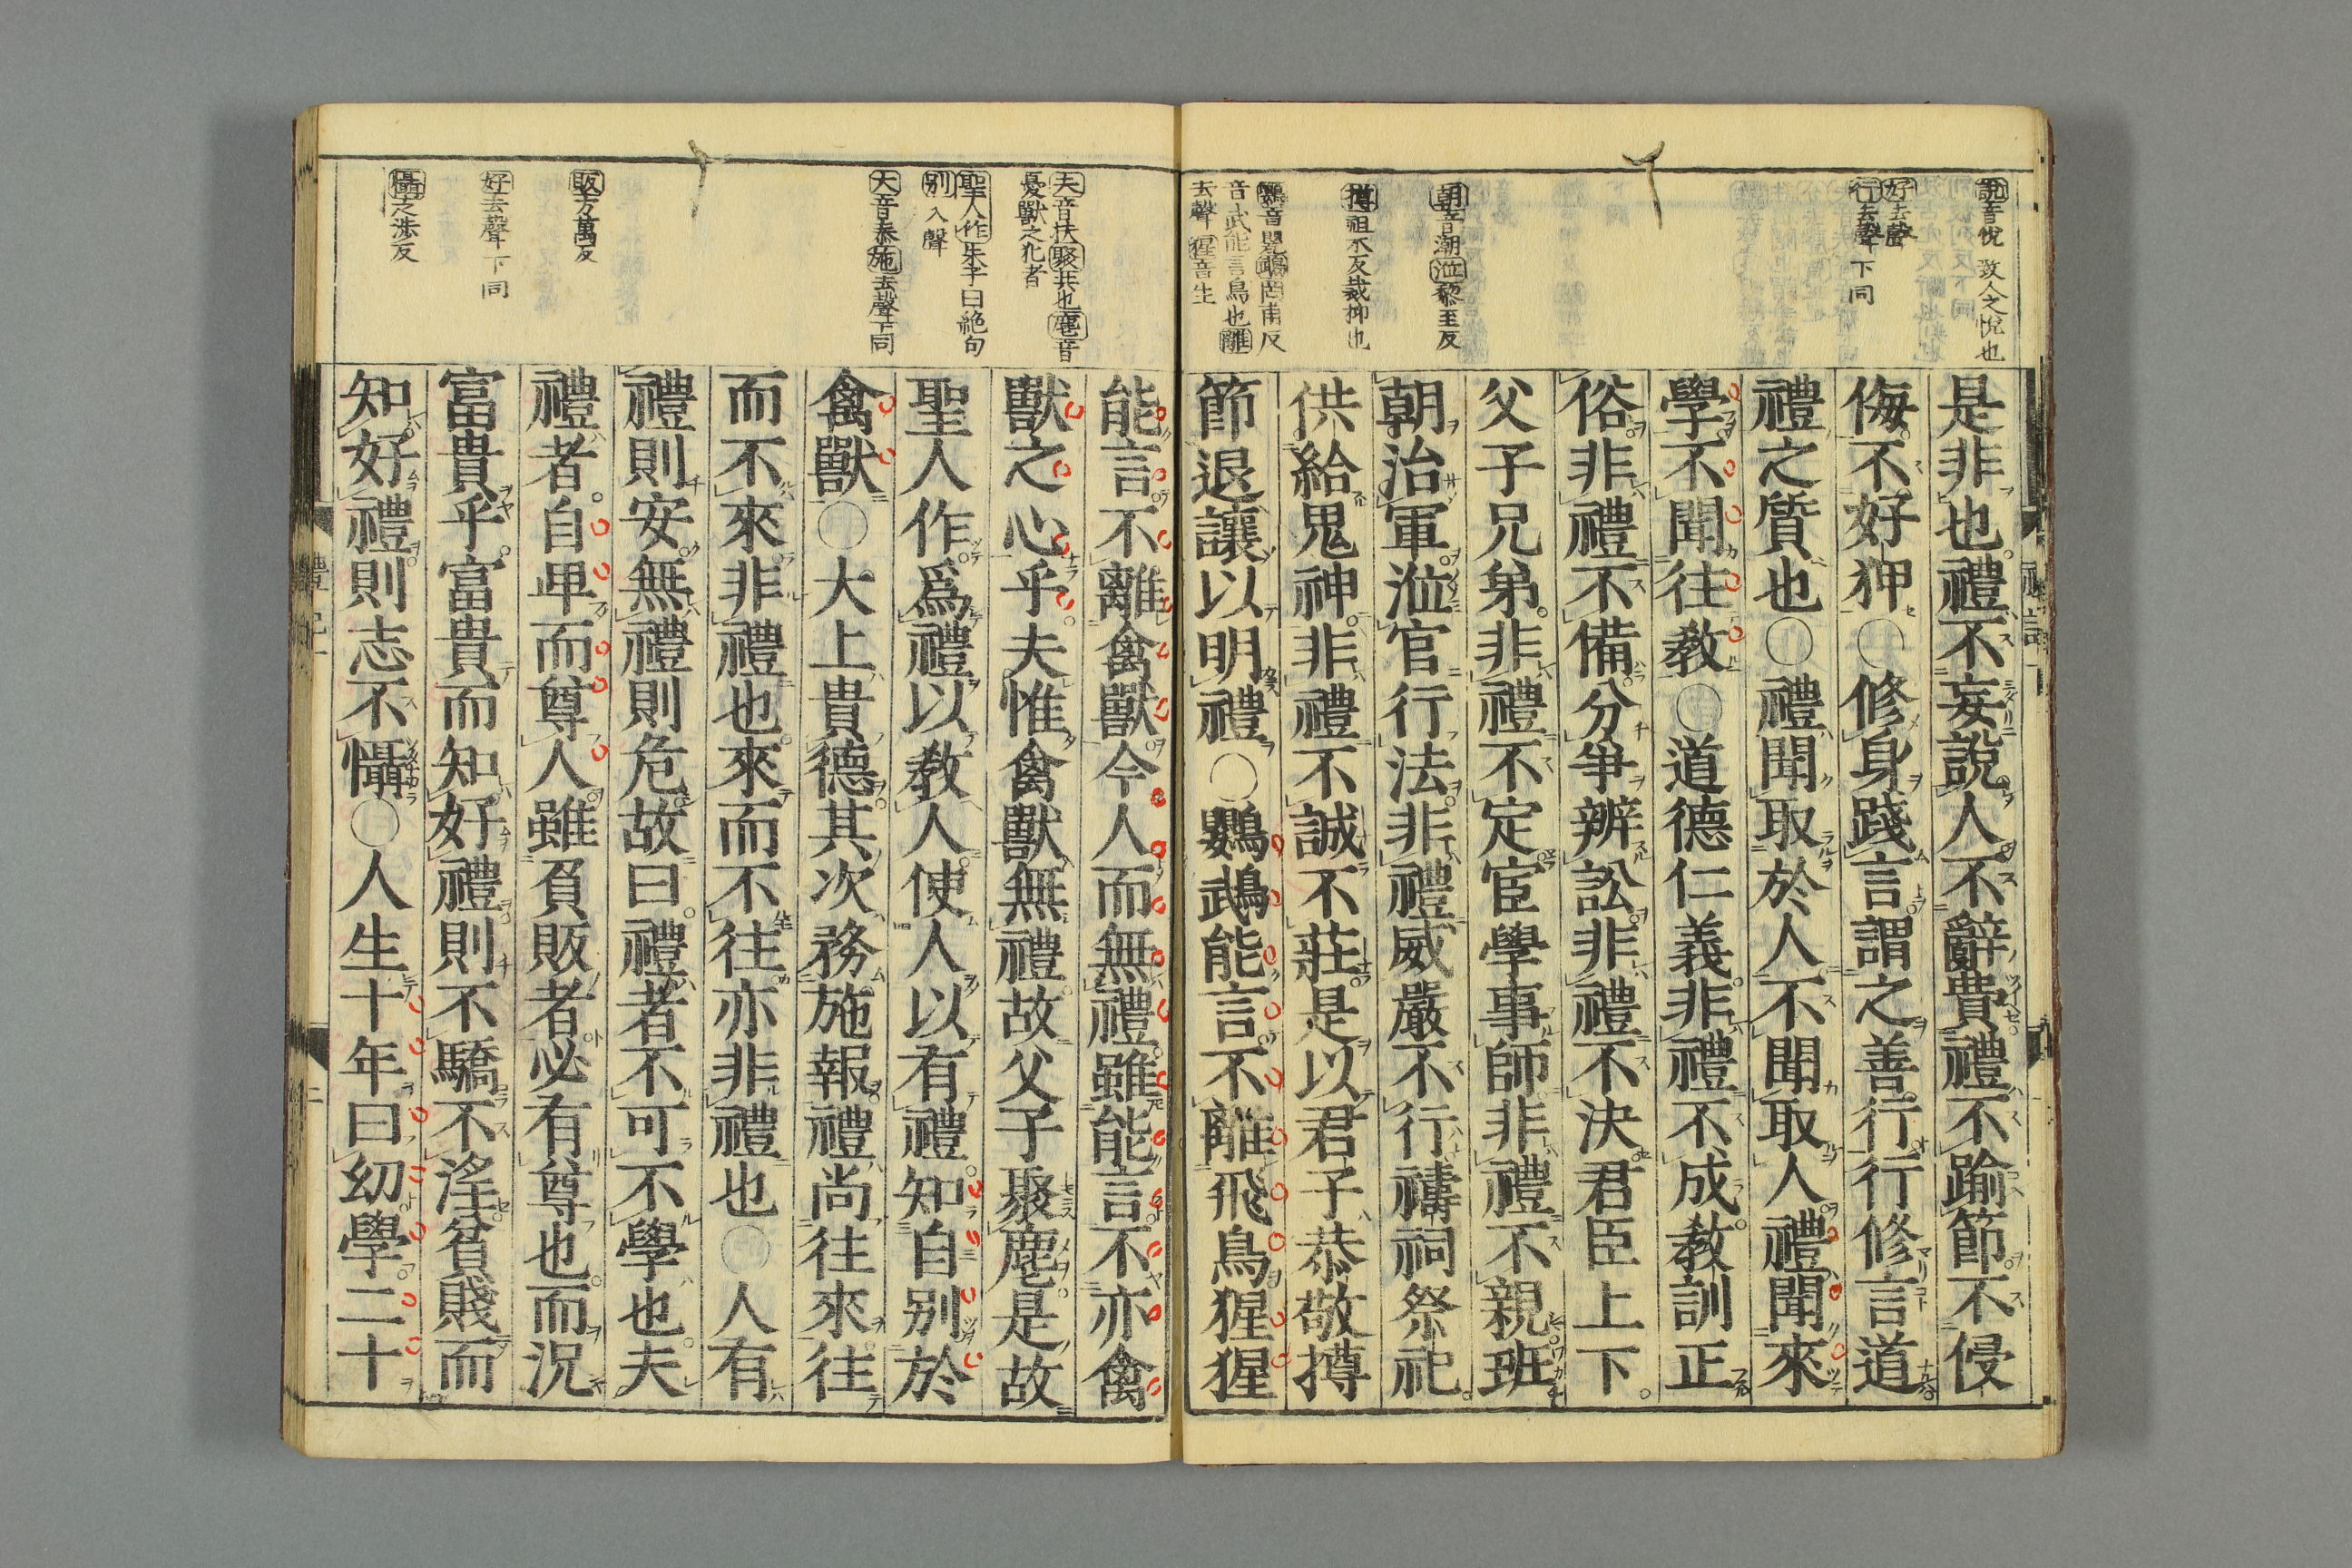 說音悅致人之悅也
好去聲
行去聲下同
朝音潮涖黎至反
撙祖本反裁抑也
鸚音嬰鵡罔甫反
音武能言鳥也離
去聲猩音生
是非也禮不妄說人不辭費禮不踰節不侵
侮不好狎○修身踐言謂之善行行修言道
禮之質也○禮聞取於人不聞取人禮聞來
學不聞往敎○道德仁義非禮不成敎訓正
俗非禮不備分爭辨訟非禮不決君臣上下
父子兄弟非禮不定宦學事師非禮不親班
朝治軍涖官行法非禮威嚴不行禱祠祭祀
供給鬼神非禮不誠不莊是以君子恭敬撙
節退讓以明禮○鸚鵡能言不離飛鳥猩猩
夫音扶聚共也麀音
憂獸之牝者
聖人作朱子曰絶句
别入聲
大音泰施去聲下同
販方萬反
好去聲下同
懾之涉反
能言不離禽獸今人而無禮雖能言不亦禽
獸之心乎夫惟禽獸無禮故父子聚麀是故
聖人作爲禮以敎人使人以有禮知自别於
禽獸○大上貴德其次務施報禮尚往來往
而不來非禮也來而不往亦非禮也○人有
禮則安無禮則危故曰禮者不可不學也夫
禮者自卑而尊人雖負販者必有尊也而況
富貴乎富貴而知好禮則不驕不淫貧賤而
知好禮則志不懾○人生十年曰幼學二十